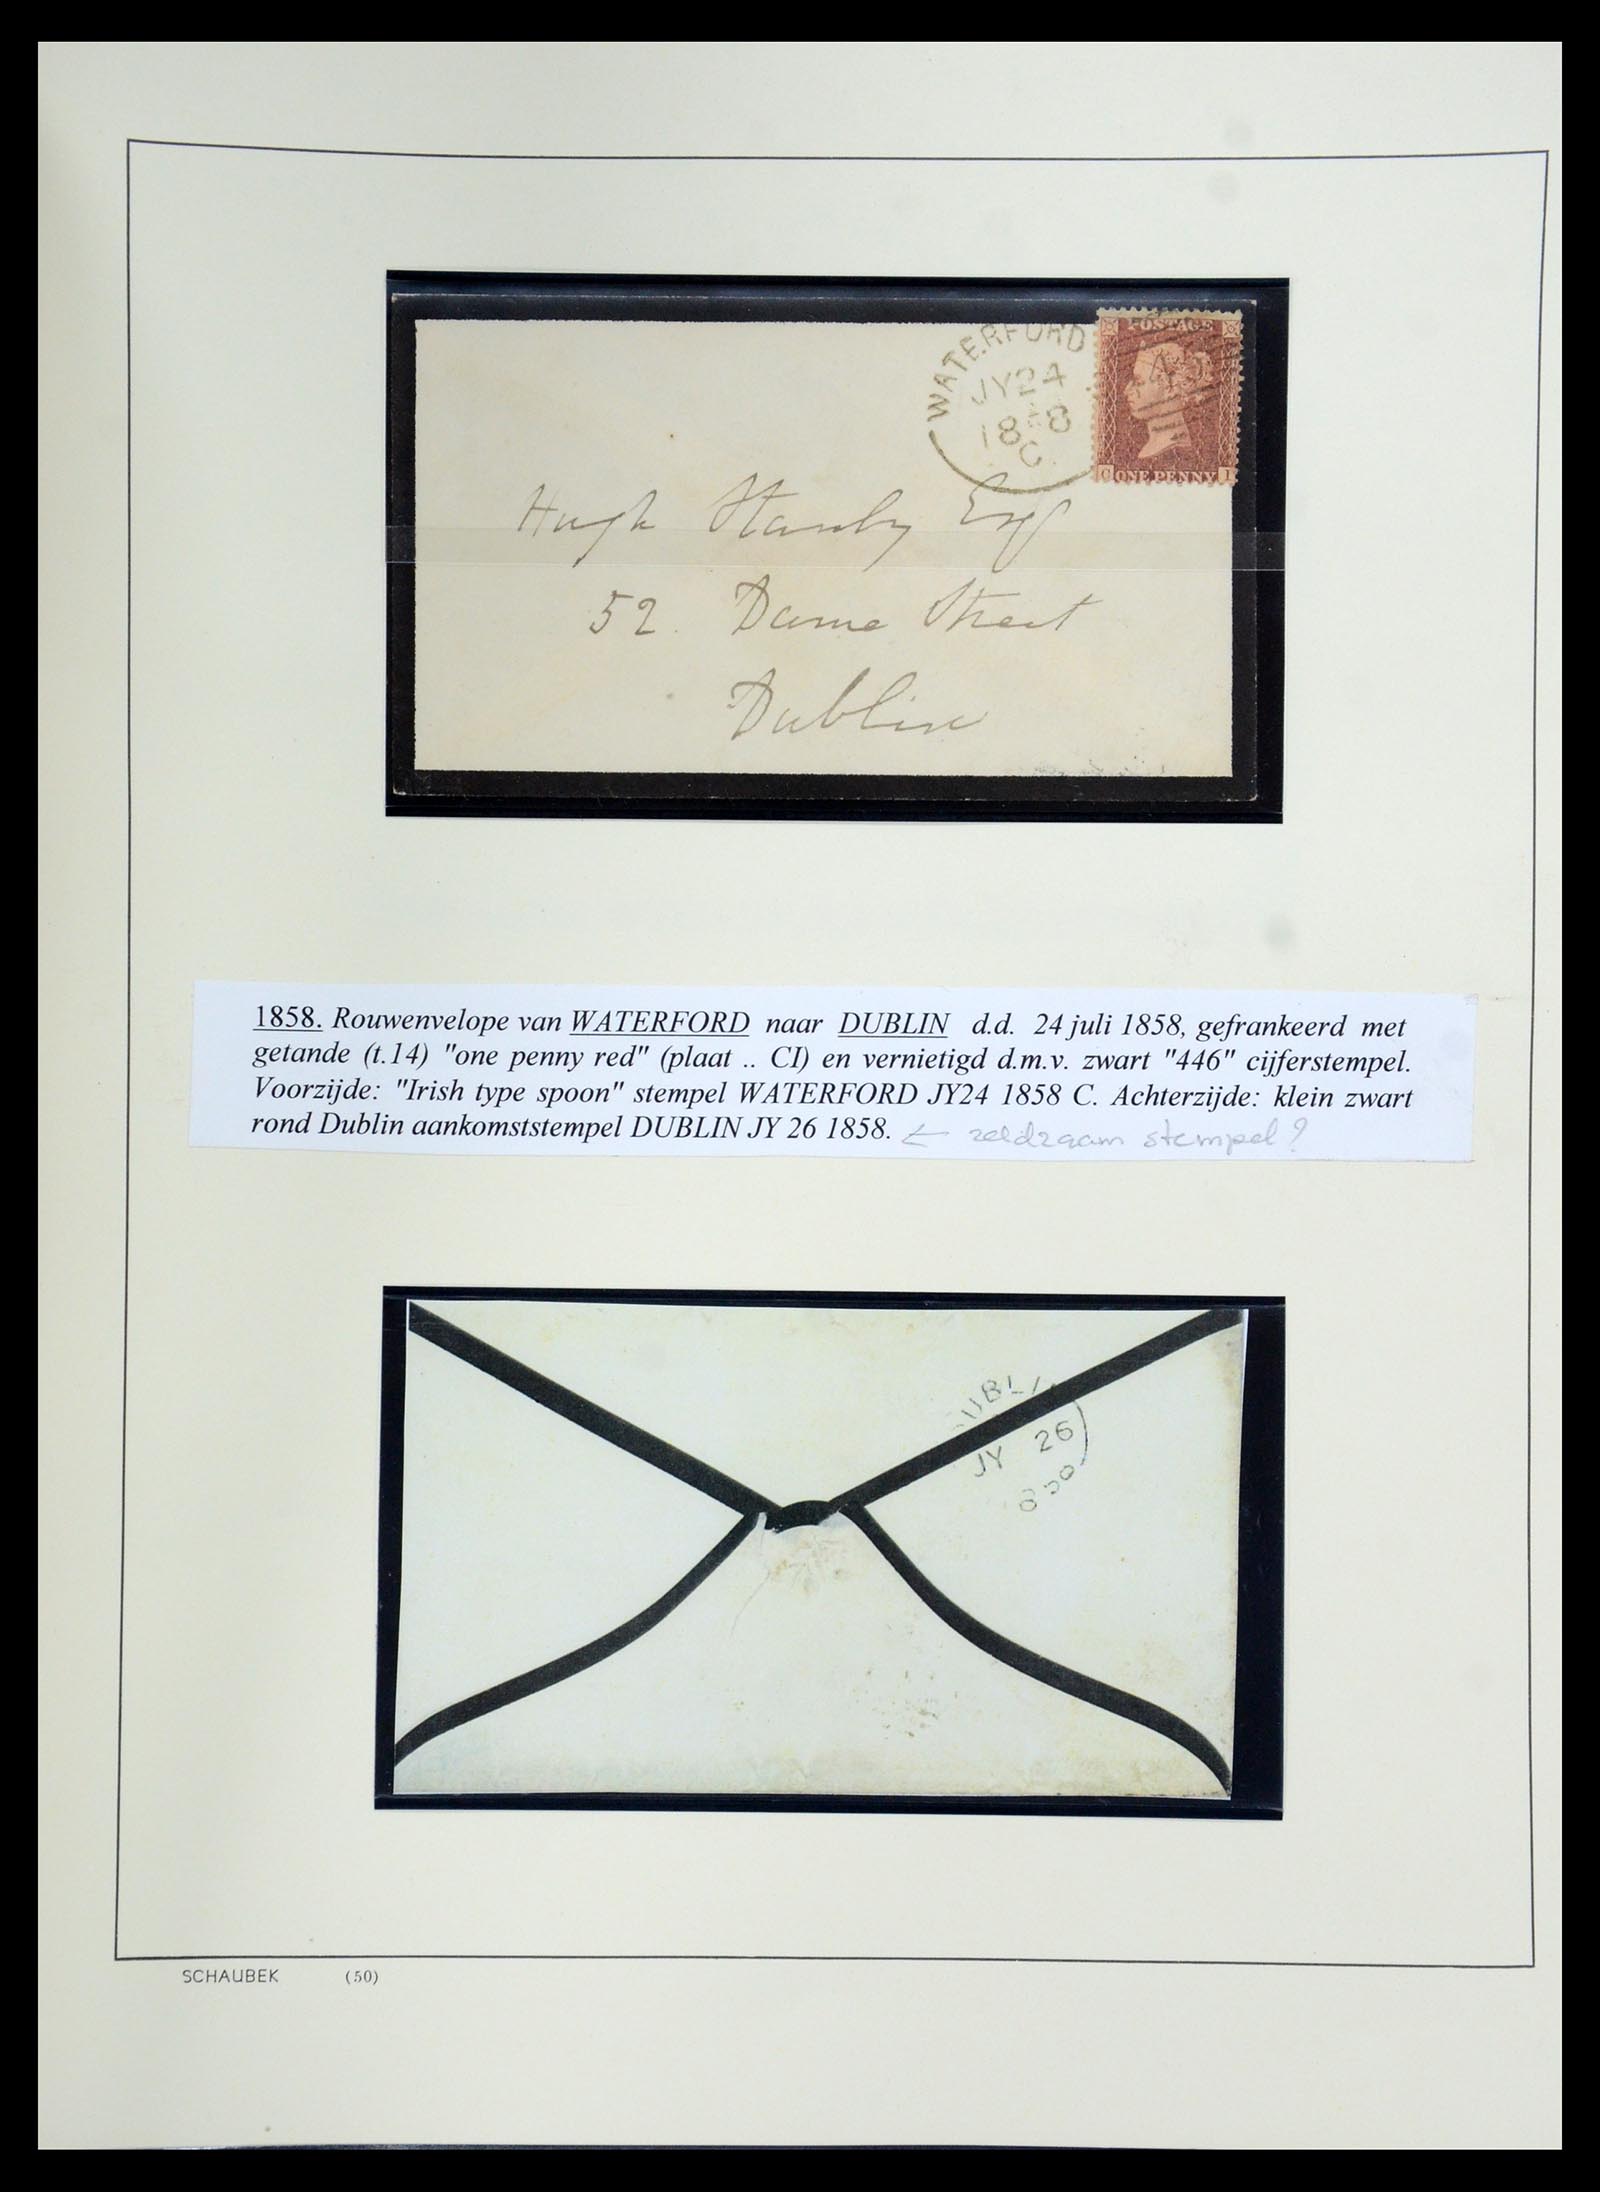 WATERFORD
JY 24
POSTAGE
C ONE PENNY I
Hugh Stanley Esq
52. Dame Street
Dublin
1858. Rouwenvelope van WATERFORD naar DUBLIN d.d. 24 juli 1858, gefrankeerd met
getande (t.14) "one penny red" (plaat .. CI) en vernietigd d.m.v. zwart "446" cijferstempel.
Voorzijde: "Irish type spoon" stempel WATERFORD JY24 1858 C. Achterzijde: klein zwart
rond Dublin aankomststempel DUBLIN JY 26 1858. ← zeldzaam stempel?
UBLI
JY 26
SCHAUBEK (50)